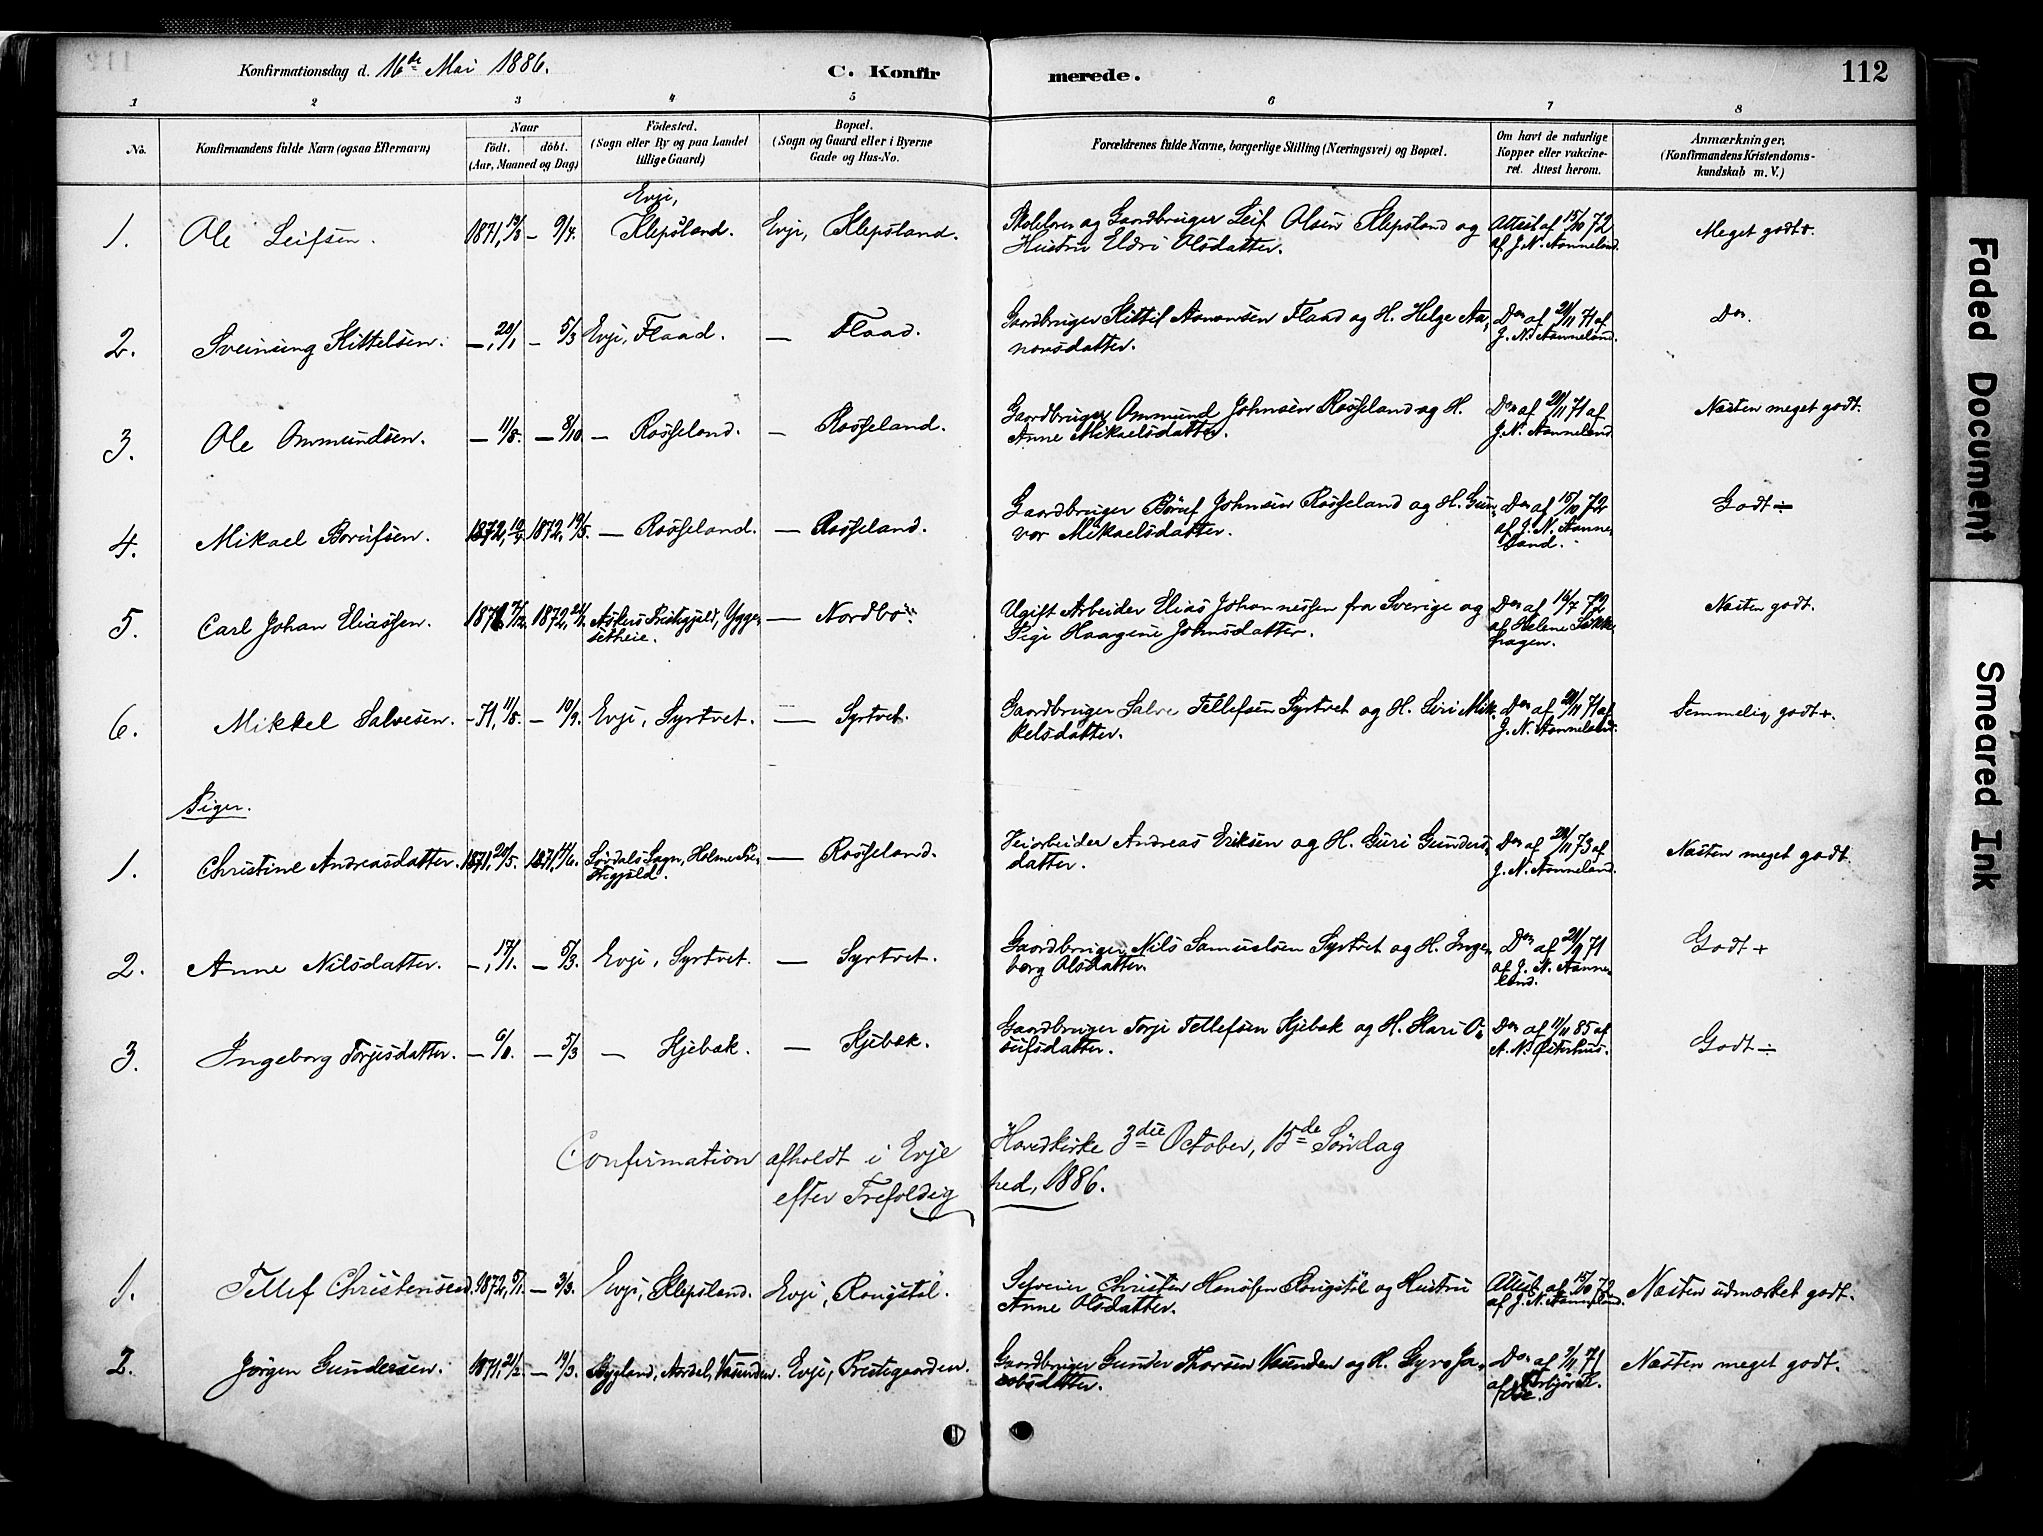 Konfirmationsdag d. 16de Mai 1886. C. Konfirmerede. 112
1 2 3 4 5 6 7 8
No. Konfirmandens fulde Navn (ogsaa Efternavn) Naar födt. döbt. (Aar, Maaned og Dag) Födested. (Sogn eller By og paa Landet tillige Gaard) Bopæl. (Sogn og Gaard eller i Byerne Gade og Hus-No. Forældrenes fulde Navne, borgerlige Stilling (Næringsvei) og Bopæl. Om havt de naturlige Kopper eller vakcineret. Attest herom. Anmærkninger. (Konfirmandens Kristendomskundskab m. V.)
1. Ole Leifsen. 1871, — 9/4. Evje, Klepsland. Evje, Klepsland. Skolelærer og Gaardbruger Leif Olsen Klepsland og Hustru Eldri Olsdatter. Attest af 15/10 72 af J. N. Aanneland. Meget godt+.
2. Sveinung Kittelsen. —, 20/1 — 5/3 Evje, Flaad. — Flaad. Gaardbruger Kittil Aanonsen Flaad og H. Helge Aanonsdatter. Do af 21/11 71 af J. N. Aanneland. Do.
3. Ole Ommundsen. — 11/8. — 8/10 — Rosseland. — Rosseland. Gaardbruger Ommund Johnsen Rosseland og H. Anne Mikaelsdatter. Do af 21/11 71 af J. N. Aanneland. Næsten meget godt.
4. Mikael Borufsen. 1872, 1872, 19/5. — Rosseland. — Rosseland. Gaardbruger Böruf Johnsen Rosseland og H. Gunvor Mikaelsdatter. Do af 15/10 72 af J. N. Aanneland. Godt ÷
5. Carl Johan Eliassen. 1871 7/12. 1872, 21/1. Askers Prestegjeld, Yggesetheie. — Nordbö. Ugift Arbeider Elias Johannessen fra Sverige og Pige Haagene Johnsdatter. Do af 12/7 72 af Helene Sikkehagen. Næsten godt.
6. Mikkel Salvesen. -71, 11/8. — 10/9. Evje, Syrtvet. — Syrtvet. Gaardbruger Salve Tellefsen Syrtvet og H. Siri Mikkelsdatter. Do af 21/11 71 af J. N. Aanneland. Temmelig godt+.
Piger.
1. Christine Andreasdatter. 1871, 20/5. 1871, 4/6. Lövdals Sogn, Holme Prestegjeld. — Rosseland. Veiarbeider Andreas Eriksen og H. Guri Gundersdatter. Do af 20/11 73 af J. N. Aanneland. Næsten meget godt.
2. Anne Nilsdatter. —, 17/1. — 5/3. Evje, Syrtvet. — Syrtvet. Gaardbruger Nils Samuelsen Syrtvet og H. Ingeborg Olsdatter. Do af 21/9 71 af J. N. Aanneland. Godt +
3. Ingeborg Torjesdatter. — — 5/3 — Kjebæk. — Kjebæk. Gaardbruger Torje Tellefsen Kjebæk og H. Kari Osufsdatter. Do af 11/11 85 af A. N. Godt ÷
Confirmation afholdt i Evje Hovedkirke 3die October, 15de Söndag
efter Trefoldighed, 1886.
1. Tellef Christensen. 1872, 5/1. — 3/3. Evje, Klepsland. Evje, Rougstöl. Selveier Christen Hansen Rougstöl og Hustru Anne Olsdatter. Attest af 15/10 72 af J. N. Aanneland. Næsten udmærket godt.
2. Jörgen Gundersen. 1871, 21/2. — 19/3. Bygland, Aardal, Vasenden. Evje, Prestegaarden. Gaardbruger Gunder Thorsen Vasenden og H. Gyro Jacobsdatter. Do af 2/11 71 af Torbjör K. Næsten meget godt.
Faded Document
Smeared Ink